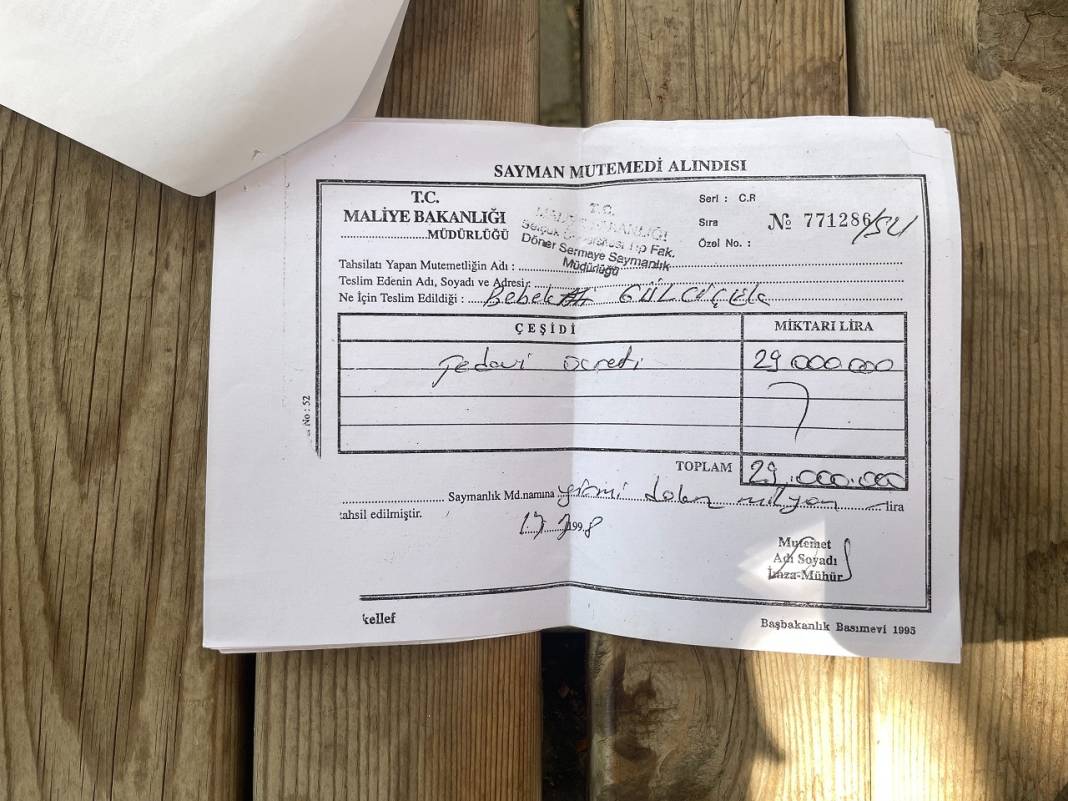 SAYMAN MUTEMEDİ ALINDISI
T.C.
MALİYE BAKANLIĞI
MÜDÜRLÜĞÜ
T.C.
MALİYE BAKANLIĞI
Tıp Fak.
Döner Sermaye Saymanlık
Müdürlüğü
Seri : C.R
Sıra № 771286/54
Özel No. :
Tahsilatı Yapan Mutemetliğin Adı :
Teslim Edenin Adı, Soyadı ve Adresi:
Ne İçin Teslim Edildiği : Bebek GÜLÇİÇEK
ÇEŞİDİ MİKTARI LİRA
Tedavi ücreti 29.000.000
TOPLAM 29.000.000
Saymanlık Md.namına yirmi dokuz milyon lira
tahsil edilmiştir.
199 8
No : 52
Mutemet
Adı Soyadı
İmza-Mühür
kellef
Başbakanlık Basımevi 1995